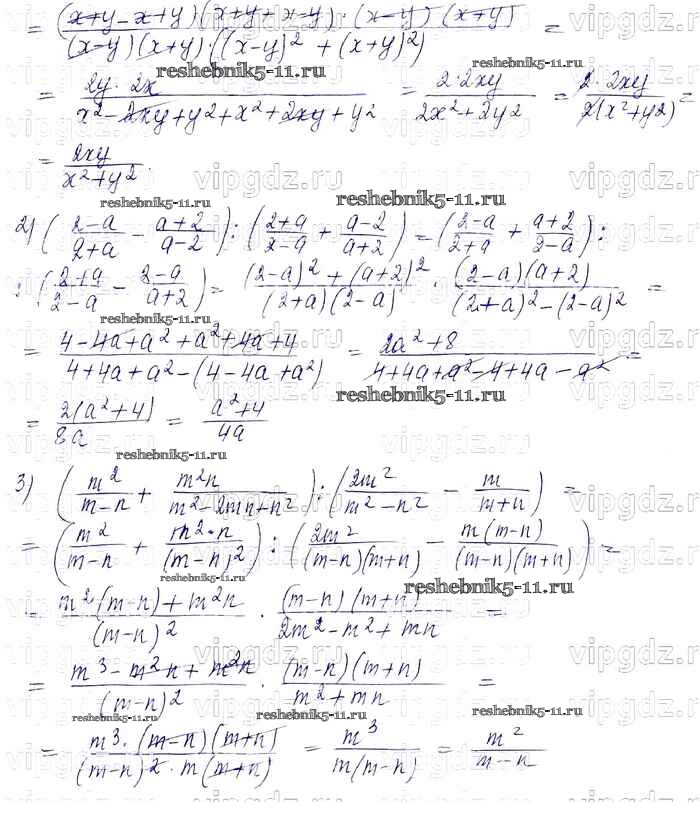 = (x+y-x+y)(x+y+x-y)·(x-y)(x+y) / (x-y)(x+y)·((x-y)²+(x+y)²) =
= 2y·2x / x²-2xy+y²+x²+2xy+y² = 2·2xy / 2x²+2y² = 2·2xy / 2(x²+y²) =
= 2xy / x²+y².
2) (2-a / 2+a - a+2 / a-2) : (2+a / 2-a + a-2 / a+2) = (2-a / 2+a + a+2 / 2-a) :
: (2+a / 2-a - 2-a / a+2) = (2-a)²+(a+2)² / (2+a)(2-a) · (2-a)(a+2) / (2+a)²-(2-a)² =
= 4-4a+a²+a²+4a+4 / 4+4a+a²-(4-4a+a²) = 2a²+8 / 4+4a+a²-4+4a-a² =
= 2(a²+4) / 8a = a²+4 / 4a
3) (m² / m-n + m²n / m²-2mn+n²) : (2m² / m²-n² - m / m+n) =
= (m² / m-n + m²·n / (m-n)²) : (2m² / (m-n)(m+n) - m(m-n) / (m-n)(m+n)) =
= m²(m-n)+m²n / (m-n)² · (m-n)(m+n) / 2m²-m²+mn =
= m³-m²n+m²n / (m-n)² · (m-n)(m+n) / m²+mn =
= m³·(m-n)(m+n) / (m-n)²·m(m+n) = m³ / m(m-n) = m² / m-n
reshebnik5-11.ru
vipgdz.ru